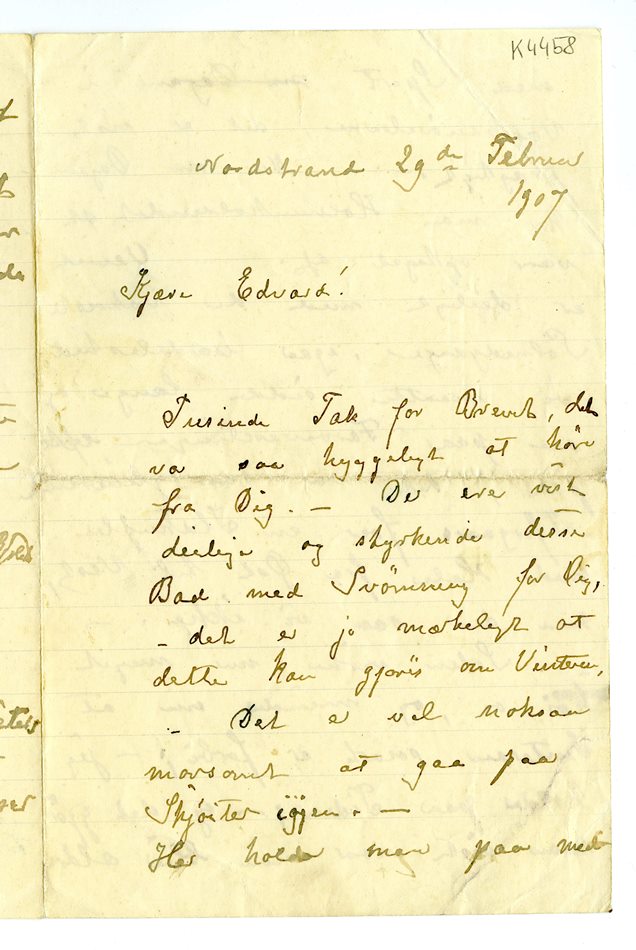 K4458
Nordstrand 29de Februar
1907
Kjære Edvard!
Tusinde Tak for Brevet, det
va saa hyggeligt at höre
fra Dig. — De ere vist
deilige og styrkende disse
Bad med Svömning for Dig,
– det er jo mærkeligt at
dette kan gjøres om Vinteren,
– Det er vel noksaa
morsomt at gaa paa
Skjöiter igjen. —
Her holder man paa med